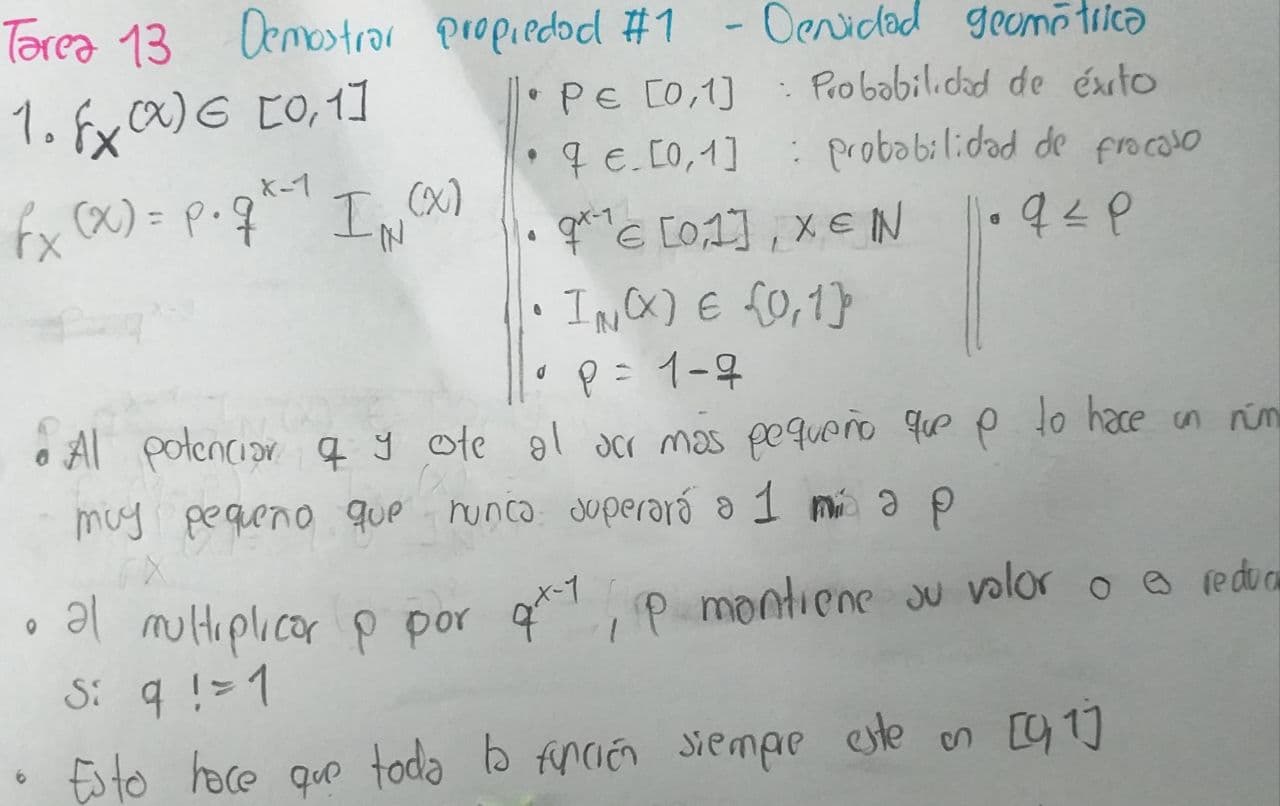 Tarea 13 Demostrar propiedad #1 - Densidad geométrica
1. fx(x) ∈ [0,1]
fx(x) = p·q^x-1 I_ℕ(x)
• p ∈ [0,1] : Probabilidad de éxito
• q ∈ [0,1] : probabilidad de fracaso
• q^x-1 ∈ [0,1], x ∈ ℕ
• I_ℕ(x) ∈ {0,1}
• p = 1-q
• q ≤ p
• Al potenciar q y este al ser mas pequeño que p lo hace un núm
muy pequeno que nunca superará a 1 ni a p
• al multiplicar p por q^x-1, p mantiene su valor o es reduc
si q != 1
• Esto hace que toda la función siempre este en [0,1]